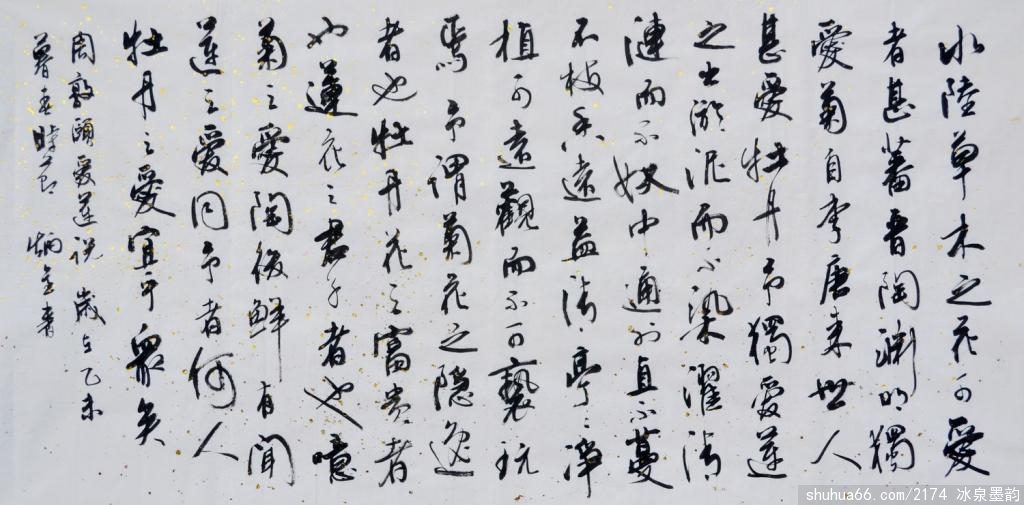 水陸草木之花可愛
者甚蕃晋陶渊明獨
愛菊自李唐来世人
甚愛牡丹予獨愛蓮
之出淤泥而不染濯清
漣而不妖中通外直不蔓
不枝香遠益清亭〻净
植可遠觀而不可褻玩
焉予謂菊花之隐逸
者也牡丹花之富贵者
也蓮花之君子者也噫
菊之愛陶後鮮有聞
蓮之愛同予者何人
牡丹之愛宜乎衆矣
周敦頤愛蓮説 歲在乙未
暮春時节 炳書
shuhua66.com/2174 冰泉墨韵